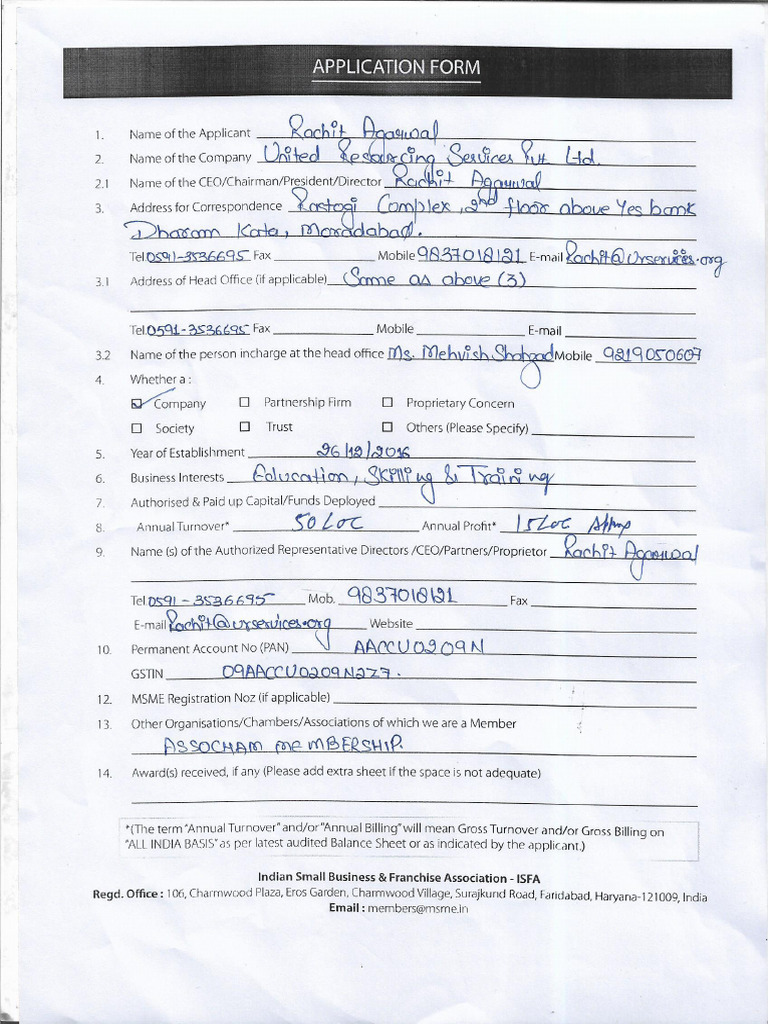 APPLICATION FORM
1. Name of the Applicant Rachit Agarwal
2. Name of the Company United Resourcing Services Pvt Ltd.
2.1 Name of the CEO/Chairman/President/Director Rachit Agarwal
3. Address for Correspondence Rastogi Complex, 2nd floor above Yes bank
Dharam Kata, Moradabad.
Tel 0591-3536695 Fax Mobile 9837018121 E-mail Rachit@urservices.org
3.1 Address of Head Office (if applicable) Same as above (3)
Tel 0591-3536695 Fax Mobile E-mail
3.2 Name of the person incharge at the head office Ms. Mehvish Shahzad Mobile 9219050607
4. Whether a :
Company Partnership Firm Proprietary Concern
Society Trust Others (Please Specify)
5. Year of Establishment 26/12/2016
6. Business Interests Education, Skilling & Training
7. Authorised & Paid up Capital/Funds Deployed
8. Annual Turnover* 50 Lac Annual Profit* 15 Lac
9. Name (s) of the Authorized Representative Directors /CEO/Partners/Proprietor Rachit Agarwal
Tel 0591-3536695 Mob. 9837018121 Fax
E-mail Rachit@urservices.org Website
10. Permanent Account No (PAN) AACCU0209N
GSTIN 09AACCU0209N2Z7.
12. MSME Registration Noz (if applicable)
13. Other Organisations/Chambers/Associations of which we are a Member
ASSOCHAM MEMBERSHIP.
14. Award(s) received, if any (Please add extra sheet if the space is not adequate)
*(The term "Annual Turnover" and/or "Annual Billing" will mean Gross Turnover and/or Gross Billing on
"ALL INDIA BASIS" as per latest audited Balance Sheet or as indicated by the applicant.)
Indian Small Business & Franchise Association - ISFA
Regd. Office : 106, Charmwood Plaza, Eros Garden, Charmwood Village, Surajkund Road, Faridabad, Haryana-121009, India
Email : members@msme.in